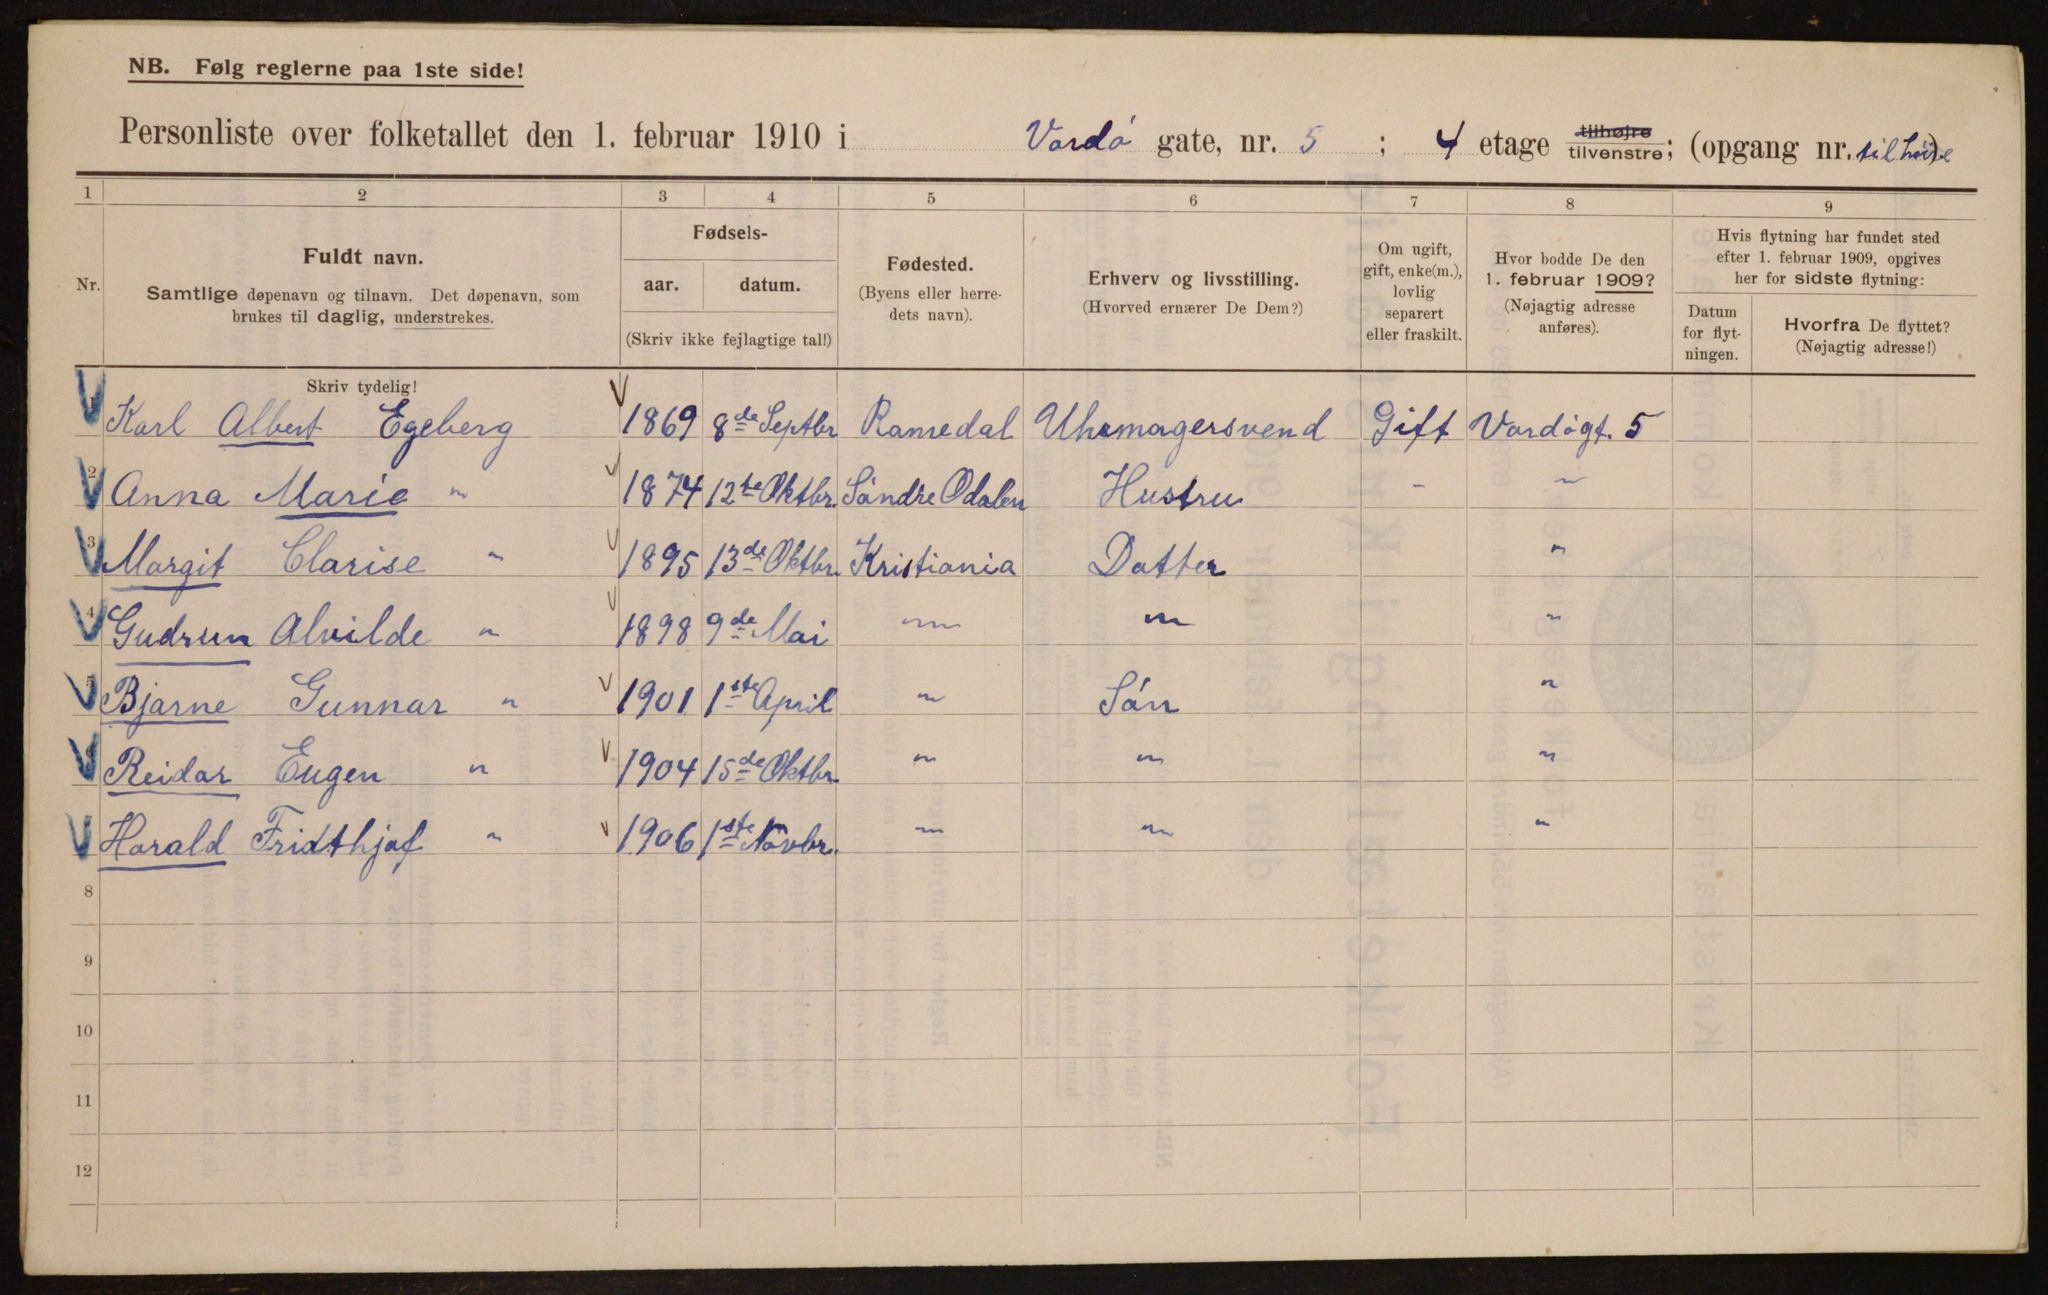 NB. Følg reglerne paa 1ste side!
Personliste over folketallet den 1. februar 1910 i Vardö gate, nr. 5 ; 4 etage tilhøjre tilvenstre; (opgang nr. )
1 2 3 4 5 6 7 8 9
Nr.
Fuldt navn.
Samtlige døpenavn og tilnavn. Det døpenavn, som
brukes til daglig, understrekes.
Skriv tydelig!
Fødsels-
aar. datum.
(Skriv ikke fejlagtige tal!)
Fødested.
(Byens eller herre-
dets navn).
Erhverv og livsstilling.
(Hvorved ernærer De Dem?)
Om ugift,
gift, enke(m.),
lovlig
separert
eller fraskilt.
Hvor bodde De den
1. februar 1909?
(Nøjagtig adresse
anføres).
Hvis flytning har fundet sted
efter 1. februar 1909, opgives
her for sidste flytning:
Datum
for flyt-
ningen.
Hvorfra De flyttet?
(Nøjagtig adresse!)
Karl Albert Egeberg 1869 8de Septbr Uhrmagersvend Gift Vardøgt. 5
2 Anna Marie " 1874 12te Oktbr. Söndre Odalen Hustru - "
3 Margit Clarise " 1895 13de Oktbr. Kristiania Datter "
4 Gudrun Alvilde " 1898 9de Mai " " "
5 Bjarne Gunnar " 1901 1ste April " Sön "
Reidar Eugen " 1904 15de Oktbr. " " "
Harald Fridthjof " 1906 1ste Novbr. " " "
8
9
10
11
12